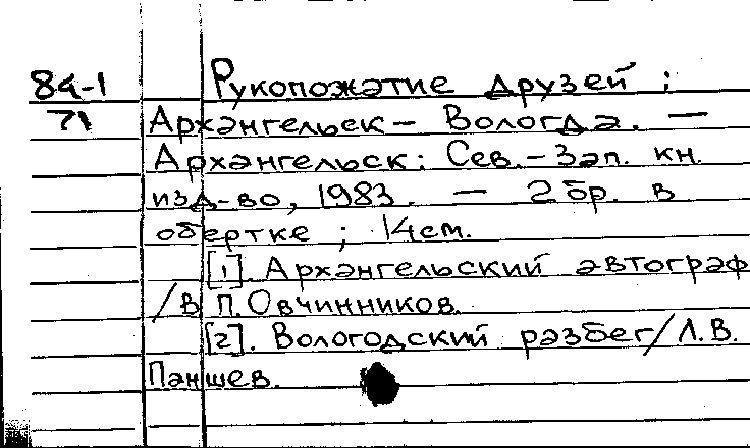 84-1 Рукопожатие друзей :
71 Архангельск — Вологда. —
Архангельск: Сев.-Зап. кн.
изд-во, 1983. — 2 бр. в
обертке ; 14см.
[1]. Архангельский автограф
/В П. Овчинников.
[2]. Вологодский разбег/Л.В.
Паншев.